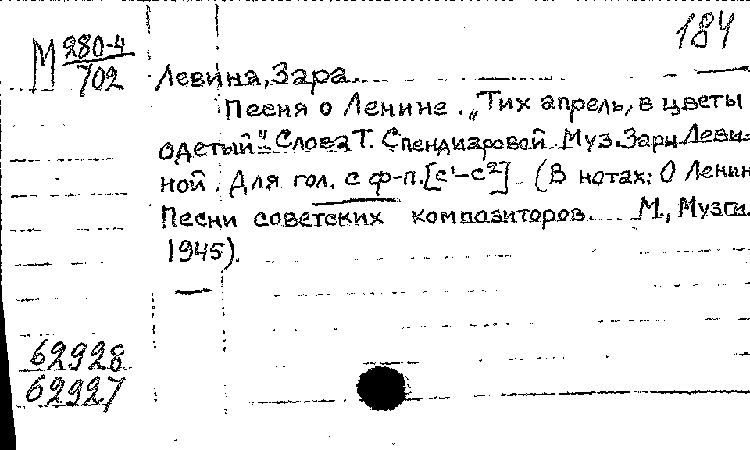 184
М 280-4
702
Левина, Зара.
Песня о Ленине. „Тих апрель, в цветы
одетый" Слова Т. Спендиаровой. Муз. Зары Леви-
ной. Для гол. с ф-п. [c¹-c²] (В нотах: О Ленин
Песни советских композиторов. М., Музги.
1945).
62928
62927